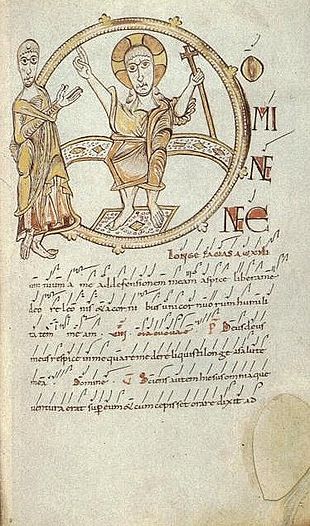 O
MI
NE
NE
LONGE FACIAS AUXILI
um tuum a me ad defensionem meam aspice libera me
de ore leonis & a cornibus unicornuorum humili
tatem meam. P Deus deus
meus respice in me quare me dereliquisti longe a salute
mea. Domine. Sciens autem hiesus omnia que
ventura erat super eum & cum cepisset orare dixit ad